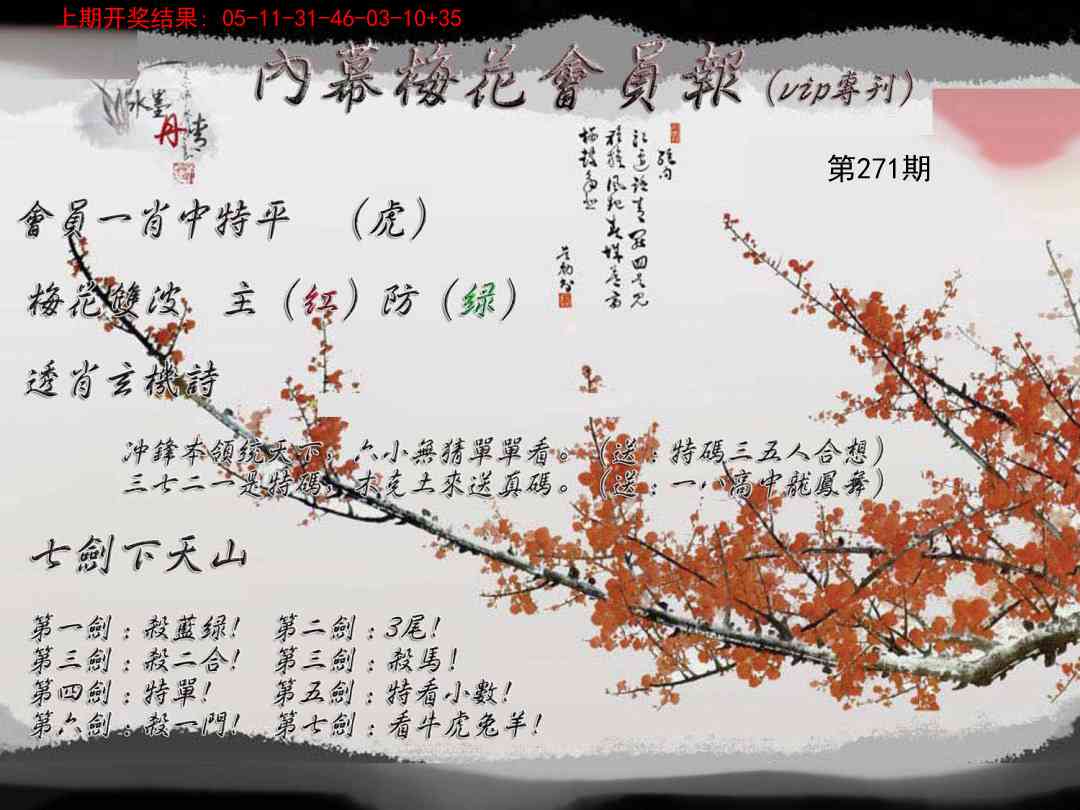 上期开奖结果：05-11-31-46-03-10+35
內幕梅花會員報(vip專刊)
水墨
丹青
第271期
會員一肖中特平 （虎）
梅花雙波 主（红）防（绿）
透肖玄機詩
冲鋒本領统天下，六小無猜單單看。（送：特碼三五人合想）
三七二一是特碼，木克土來送真碼。（送：一八高中龍鳳舞）
七劍下天山
第一劍：殺藍绿！ 第二劍：3尾！
第三劍：殺二合！ 第三劍：殺馬！
第四劍：特單！ 第五劍：特看小數！
第六劍：殺一門！ 第七劍：看牛虎兔羊！